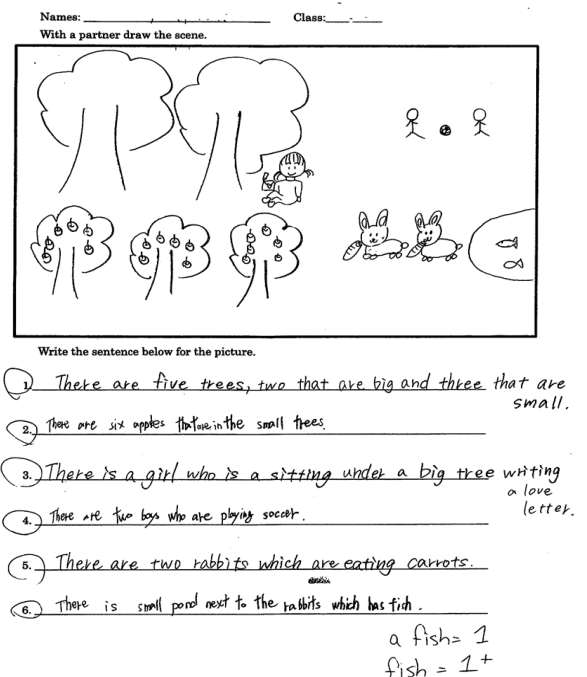 Names: Class:
With a partner draw the scene.
Write the sentence below for the picture.
1. There are five trees, two that are big and three that are
small.
2. There are six apples that are in the small trees.
3. There is a girl who is a sitting under a big tree writing
a love
letter.
4. There are two boys who are playing soccer.
5. There are two rabbits which are eating carrots.
6. There is small pond next to the rabbits which has fish.
a fish = 1
fish = 1+